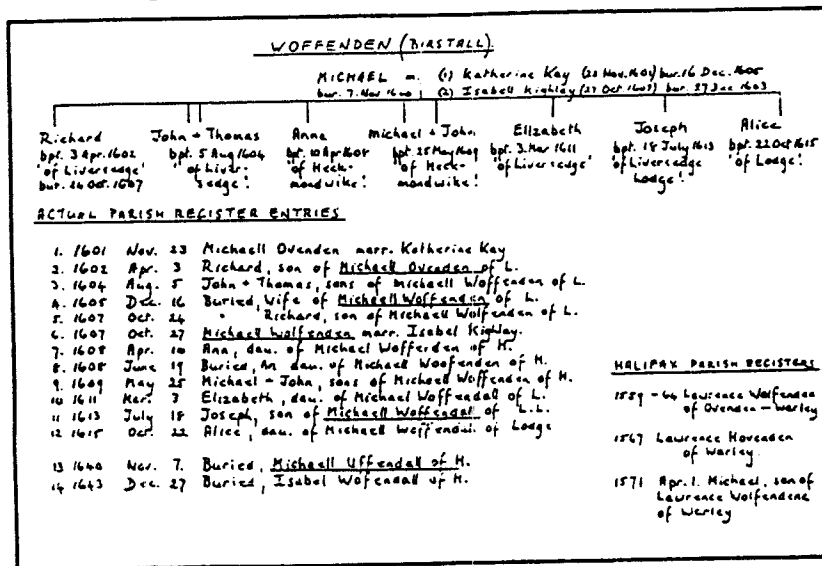 WOFFENDEN (BIRSTALL).
MICHAEL m. (1) Katherine Kay (23 Nov. 1601) bur. 16 Dec. 1605
bur. 7. Nov 1640 (2) Isabell Kighley (27 Oct 1607) bur. 27 Dec 1643
Richard
bpt. 3 Apr. 1602
'of Liversedge'
bur. 24 Oct. 1607
John + Thomas
bpt. 5 Aug 1604
'of Liver-
sedge'
Anna
bpt. 10 Apr 1608
'of Heck-
mondwike'
Michael + John
bpt. 25 May 1609
'of Heck-
mondwike'
Elizabeth
bpt. 3. Mar 1611
'of Liversedge'
Joseph
bpt. 18 July 1613
'of Liversedge
Lodge'
Alice
bpt. 22 Oct 1615
'of Lodge'
ACTUAL PARISH REGISTER ENTRIES
1. 1601 Nov. 23 Michaell Ovenden marr. Katherine Kay
2. 1602 Apr. 3 Richard, son of Michaell Ovenden of L.
3. 1604 Aug. 5 John + Thomas, sons of Michaell Woffenden of L.
4. 1605 Dec. 16 Buried, wife of Michaell Woffenden of L.
5. 1607 Oct. 24 " Richard, son of Michaell Wolfenden of L.
6. 1607 Oct. 27 Michaell Wolfenden marr. Isabel Kighley.
7. 1608 Apr. 10 Ann, dau. of Michael Wofferden of H.
8. 1608 June 19 Buried, An dau. of Michael Woofenden of H.
9. 1609 May 25 Michael + John, sons of Michael Woffenden of H.
10 1611 Mar. 3 Elizabeth, dau. of Michael Woffendall of L.
11 1613 July 18 Joseph, son of Michael Woffendal of L.L.
12 1615 Oct. 22 Alice, dau. of Michael Woffendal. of Lodge
13 1640 Nov. 7. Buried, Michaell Uffendall of H.
14 1643 Dec. 27 Buried, Isabel Wofendall of H.
HALIFAX PARISH REGISTERS
1559-64 Lawrence Wolfenden
of Ovenden-Warley
1567 Lawrence Hovenden
of Warley.
1571 Apr. 1. Michael, son of
Lawrence Wolfendene
of Warley